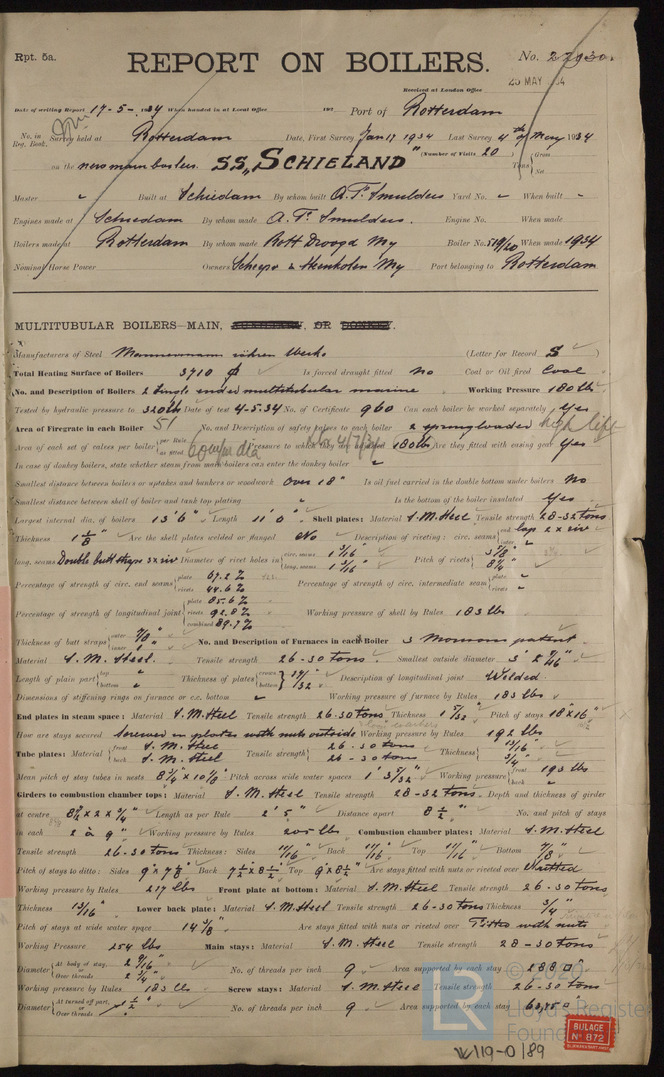 Rpt. 5a.
REPORT ON BOILERS.
No.
Received at London Office
25 MAY 34
Date of writing Report 17-5- 1934 When handed in at Local Office 192 Port of Rotterdam
No. in Reg. Book. Survey held at Rotterdam Date, First Survey Jan 17 1934 Last Survey 4th of May 1934
on the new main boilers. SS "SCHIELAND" (Number of Visits 20) Tons Gross Net
Master " Built at Schiedam By whom built A. F. Smulders Yard No. " When built "
Engines made at Schiedam By whom made A. F. Smulders. Engine No. When made
Boilers made at Rotterdam By whom made Rott Droogd My Boiler No. 519/20 When made 1934
Nominal Horse Power Owners Scheeps & Steenkolen My Port belonging to Rotterdam
MULTITUBULAR BOILERS—MAIN, OR
Manufacturers of Steel Mannesmann röhren Werke (Letter for Record S)
Total Heating Surface of Boilers 3710 Is forced draught fitted No Coal or Oil fired Coal
No. and Description of Boilers 2 Single ended multitubular marine Working Pressure 180 lbs
Tested by hydraulic pressure to 320 lbs Date of test 4-5.34 No. of Certificate 960 Can each boiler be worked separately Yes
Area of Firegrate in each Boiler 51 No. and Description of safety valves to each boiler 2 spring loaded high lift
Area of each set of valves per boiler per Rule as fitted 60 m/m dia Pressure to which they are adjusted 180 lbs Are they fitted with easing gear Yes
In case of donkey boilers, state whether steam from main boilers can enter the donkey boiler "
Smallest distance between boilers or uptakes and bunkers or woodwork Over 18" Is oil fuel carried in the double bottom under boilers No
Smallest distance between shell of boiler and tank top plating Is the bottom of the boiler insulated Yes
Largest internal dia. of boilers 13' 6" Length 11' 0" Shell plates: Material S. M. Steel Tensile strength 28-32 tons
Thickness 1 1/8" Are the shell plates welded or flanged No Description of riveting: circ. seams end lap 2 x riv inter. "
long. seams Double butt straps 3x riv Diameter of rivet holes in circ. seams 1 3/16" long. seams 1 3/16" Pitch of rivets 3 7/8" 8 1/4"
Percentage of strength of circ. end seams plate 67.2 % rivets 44.6 % Percentage of strength of circ. intermediate seam plate " rivets "
Percentage of strength of longitudinal joint plate 85.6 % rivets 92.8 % combined 89.7 % Working pressure of shell by Rules 183 lbs
Thickness of butt straps outer 7/8" inner 1" No. and Description of Furnaces in each Boiler 3 Morison patent
Material S. M. Steel. Tensile strength 26-30 tons. Smallest outside diameter 3' 2 7/16"
Length of plain part top " bottom " Thickness of plates crown bottom 17/32" Description of longitudinal joint Welded
Dimensions of stiffening rings on furnace or c.c. bottom " Working pressure of furnace by Rules 183 lbs
End plates in steam space: Material S. M. Steel Tensile strength 26-30 tons Thickness 1 5/32" Pitch of stays 18" x 16"
How are stays secured Screwed in plates with nuts outside Working pressure by Rules 192 lbs
Tube plates: Material front S. M. Steel back S. M. Steel Tensile strength 26-30 tons 26-30 tons Thickness 13/16" 3/4"
Mean pitch of stay tubes in nests 8 1/4" x 10 1/8" Pitch across wide water spaces 1' 3 5/32" Working pressure front 193 lbs back "
Girders to combustion chamber tops: Material S. M. Steel Tensile strength 28-32 tons. Depth and thickness of girder
at centre 8 1/4 x 2 x 3/4" Length as per Rule 2' 5" Distance apart 8 1/2" No. and pitch of stays
in each 2 à 9" Working pressure by Rules 205 lbs Combustion chamber plates: Material S. M. Steel
Tensile strength 26-30 tons Thickness: Sides 11/16" Back 11/16" Top 11/16" Bottom 7/8"
Pitch of stays to ditto: Sides 9" x 7 7/8" Back 7 1/2" x 8 1/2" Top 9" x 8 1/2" Are stays fitted with nuts or riveted over Nutted
Working pressure by Rules 217 lbs Front plate at bottom: Material S. M. Steel Tensile strength 26-30 tons
Thickness 13/16" Lower back plate: Material S. M. Steel Tensile strength 26-30 tons Thickness 3/4"
Pitch of stays at wide water space 14 3/8" Are stays fitted with nuts or riveted over Fitted with nuts
Working Pressure 254 lbs Main stays: Material S. M. Steel Tensile strength 28-30 tons
Diameter At body of stay, 2 9/16" or Over threads 2 3/4" No. of threads per inch 9 Area supported by each stay 288 □"
Working pressure by Rules 183 lbs Screw stays: Material S. M. Steel Tensile strength 26-30 tons
Diameter At turned off part, or Over threads 1 1/2" No. of threads per inch 9 Area supported by each stay 63,75 □"
© 2020
Lloyd's Register
Foundation
LR
BIJLAGE
No 872
W119-0189